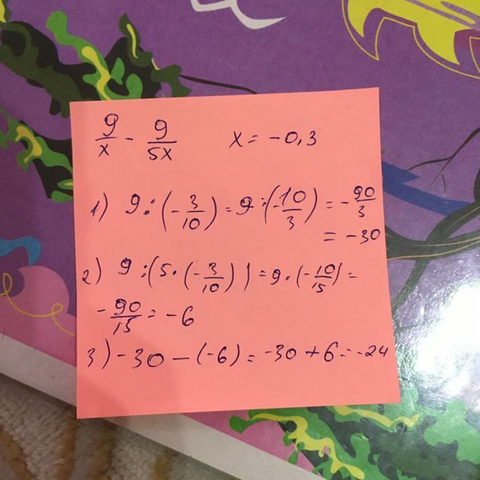 9/x - 9/5x x = -0,3
1) 9 : (-3/10) = 9 · (-10/3) = -90/3
= -30
2) 9 : (5 · (-3/10)) = 9 · (-10/15) =
-90/15 = -6
3) -30 - (-6) = -30 + 6 = -24